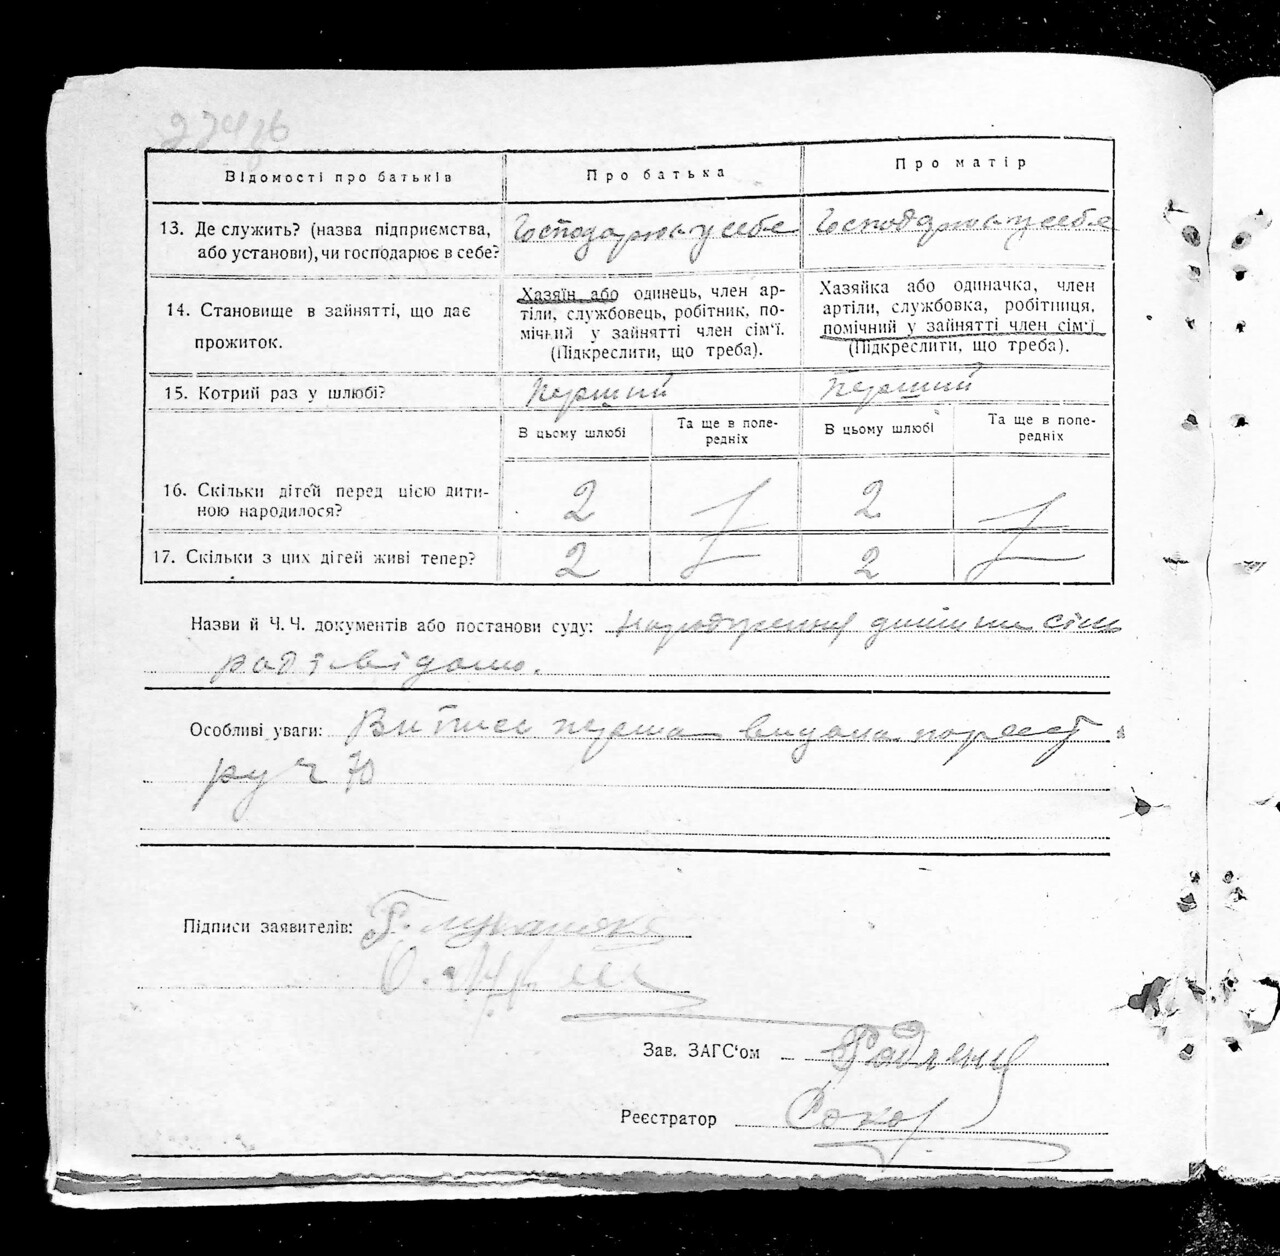 Відомості про батьків
Про батька
Про матір
13. Де служить? (назва підприємства,
або установи), чи господарює в себе?
Господарює у себе
Господарює у себе
14. Становище в зайнятті, що дає
прожиток.
Хазяїн або одинець, член ар-
тіли, службовець, робітник, по-
мічний у зайнятті член сім'ї.
(Підкреслити, що треба).
Хазяйка або одиначка, член
артіли, службовка, робітниця,
помічний у зайнятті член сім'ї
(Підкреслити, що треба).
15. Котрий раз у шлюбі?
Перший
Перший
В цьому шлюбі
Та ще в попе-
редніх
В цьому шлюбі
Та ще в попе-
редніх
16. Скільки дітей перед цією дити-
ною народилося?
2
2
17. Скільки з цих дітей живі тепер?
2
2
Назви й Ч. Ч. документів або постанови суду: народження дитини сіль
раді відомо.
Особливі уваги: Витпис перша видана пореєст
ру ч 70
Підписи заявителів:
Зав. ЗАГС'ом
Реєстратор